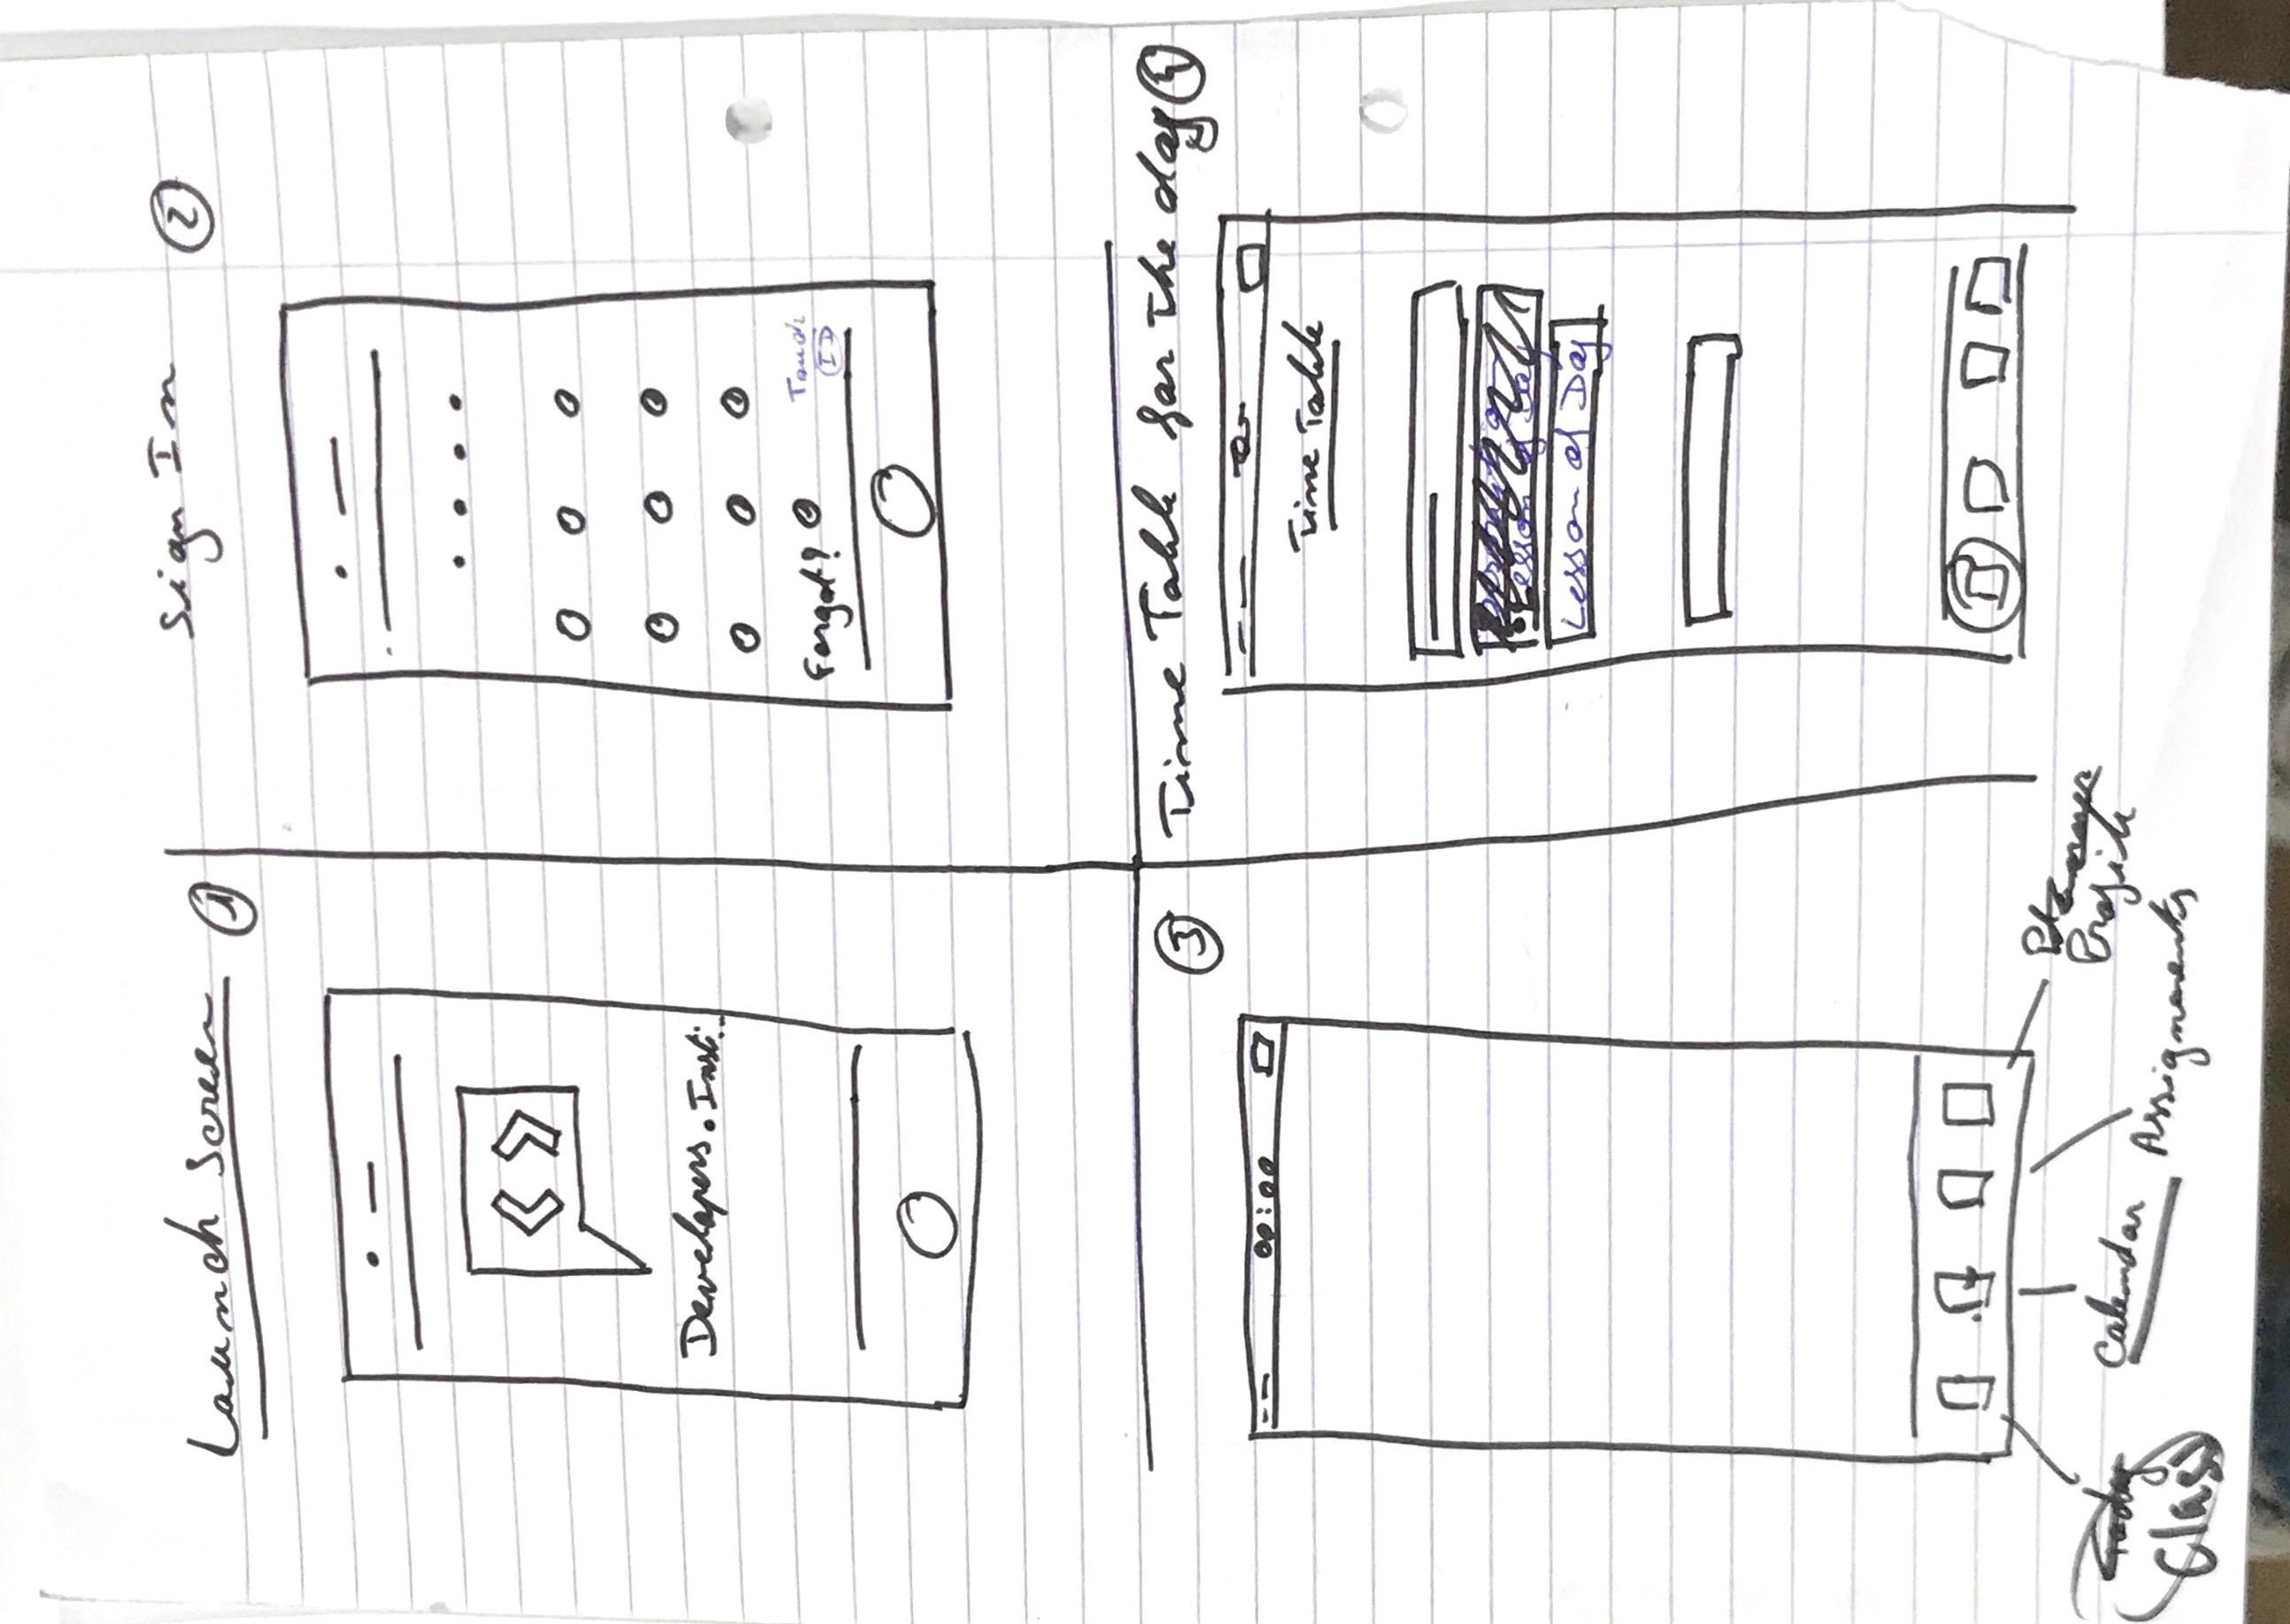 Launch Screen ①
Developers.Inst.
Sign In ②
Forgot?
Touch
ID
③
00:00
Today
Class
Calendar
Assignments
Profile
Time Table for the day ④
Time Table
Lesson of Day
Lesson of Day